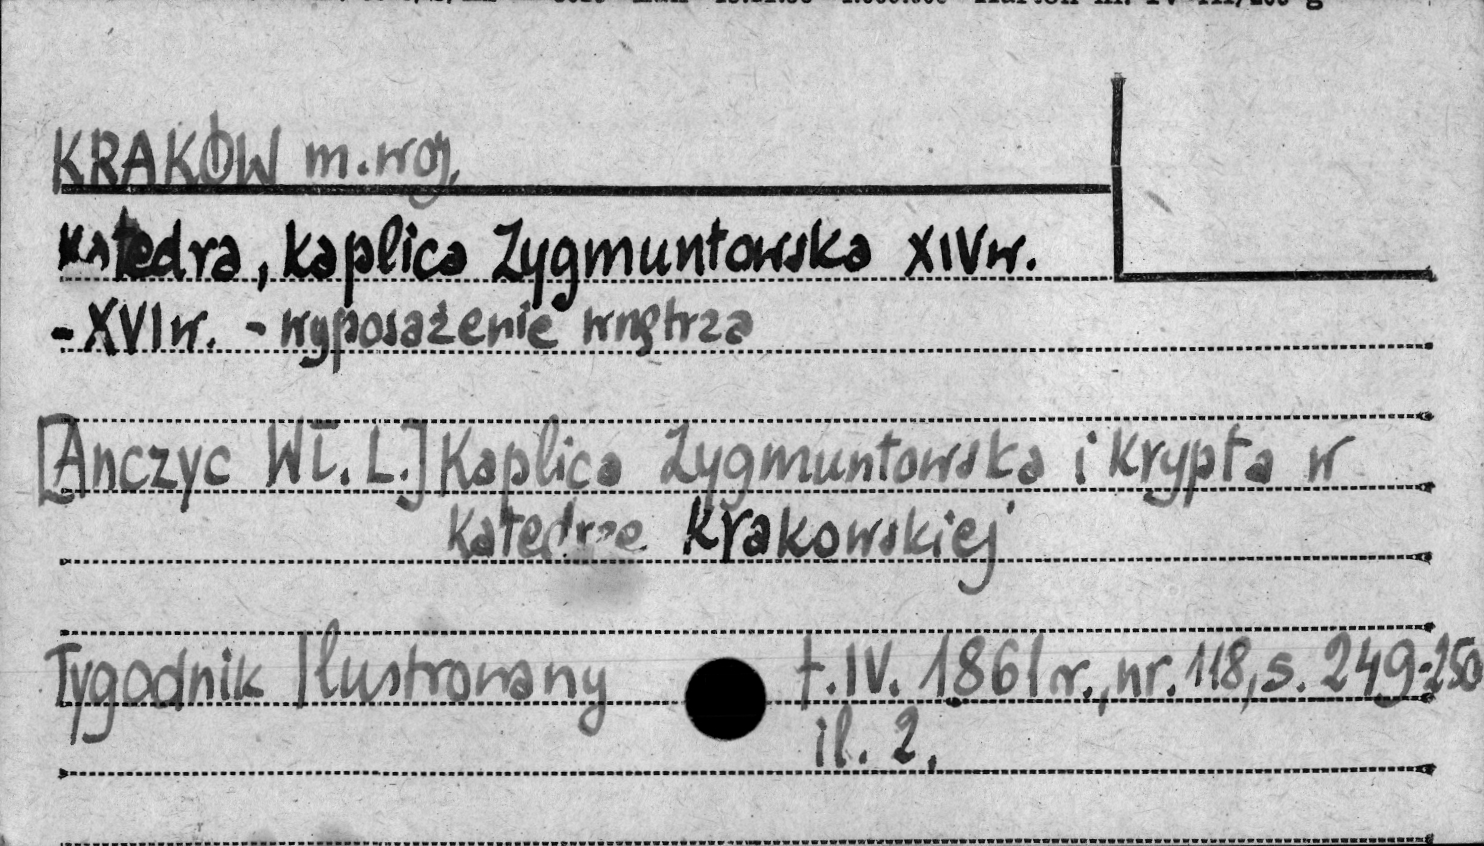 KRAKÓW m.woj.
Katedra, kaplica Zygmuntowska XIVw.
-XVIw. - wyposażenie wnętrza
[Anczyc Wł. L.] Kaplica Zygmuntowska i krypta w
Katedrze Krakowskiej
Tygodnik Ilustrowany t.IV. 1861r., nr. 118, s. 249-250
il. 2.